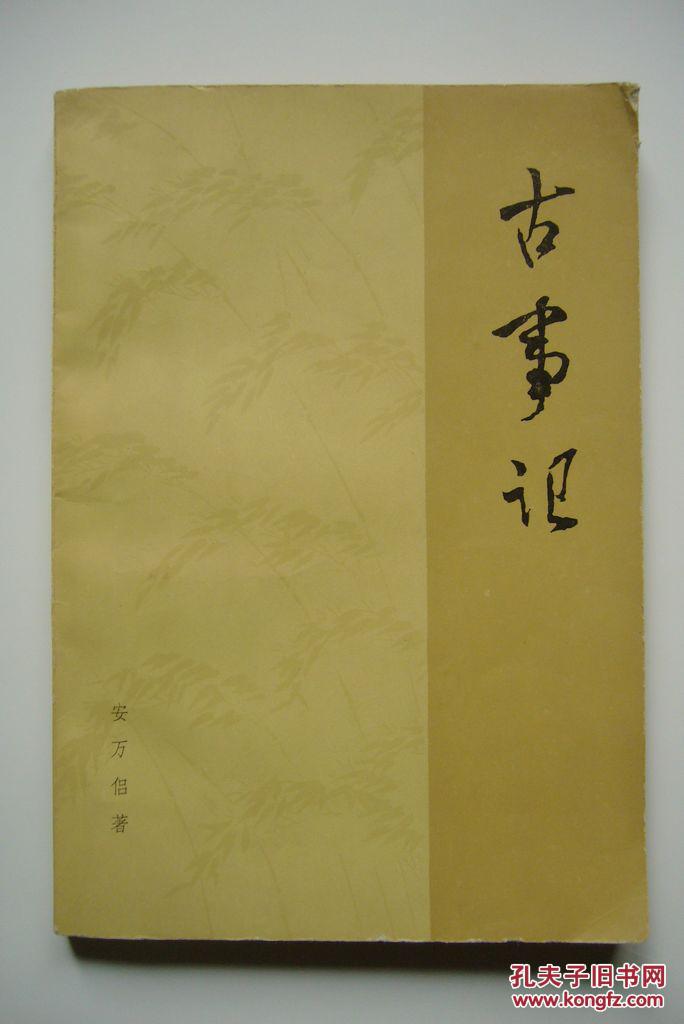 古事记
安万侣著
孔夫子旧书网
www.kongfz.com